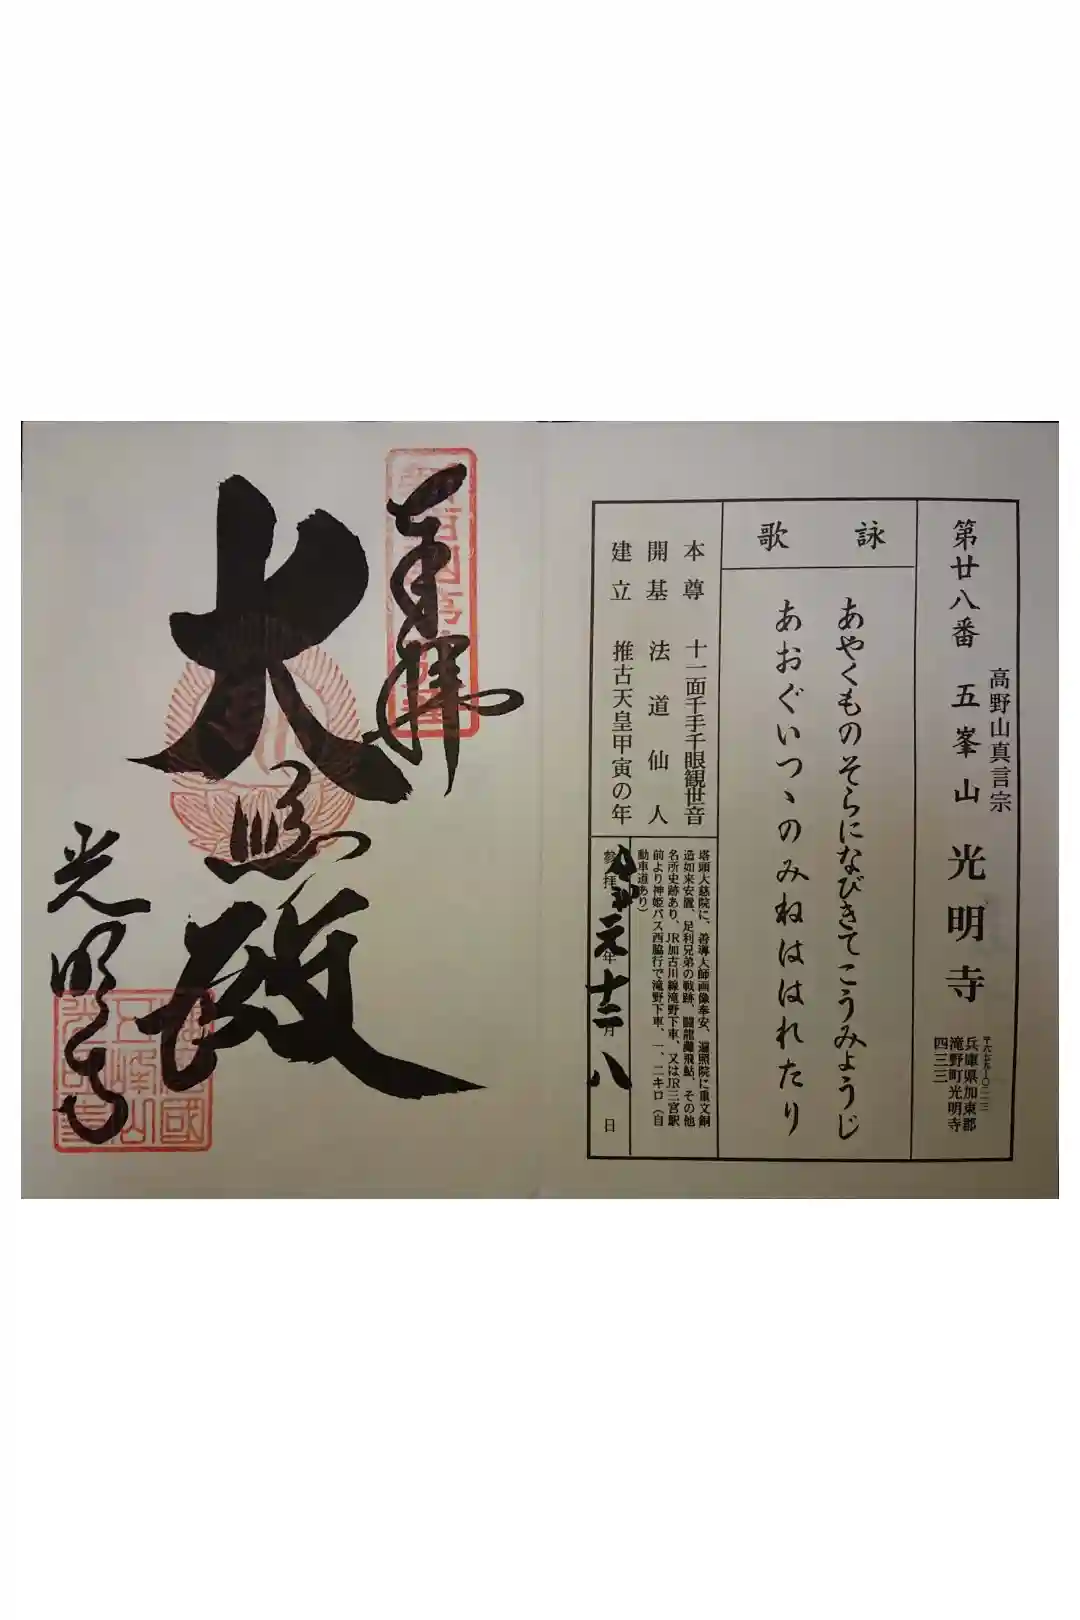 高野山真言宗
第廿八番 五峯山 光明寺
〒六七九ー〇二一三
兵庫県加東郡
滝野町光明寺
四三三
詠歌
あやくものそらになびきてこうみょうじ
あおぐいつヽのみねははれたり
本尊 十一面千手千眼観世音
開基 法道仙人
建立 推古天皇甲寅の年
塔頭大慈院に、善導大師画像奉安、遍照院に重文銅
造如来安置、足利兄弟の戦跡、闘龍灘飛鮎、その他
名所史跡あり、JR加古川線滝野下車、又はJR三宮駅
前より神姫バス西脇行で滝野下車、一、二キロ（自
動車道あり）
参拝 令和元年十二月八日
奉拝
大悲殿
光明寺